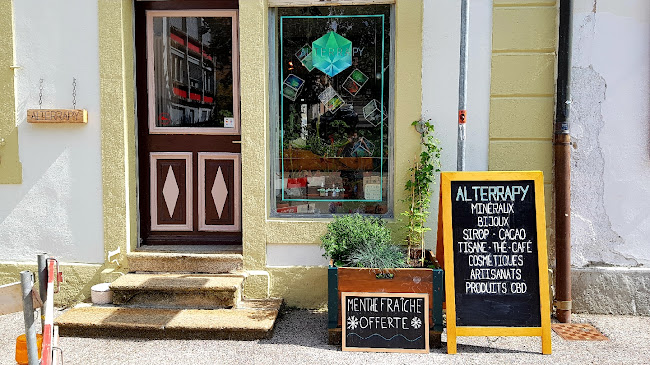 ALTERRAPY
ALTERRAPY
ALTERRAPY
MINÉRAUX
BIJOUX
SIROP · CACAO
TISANE · THÉ · CAFÉ
COSMÉTIQUES
ARTISANATS
PRODUITS CBD
MENTHE FRAÎCHE
OFFERTE